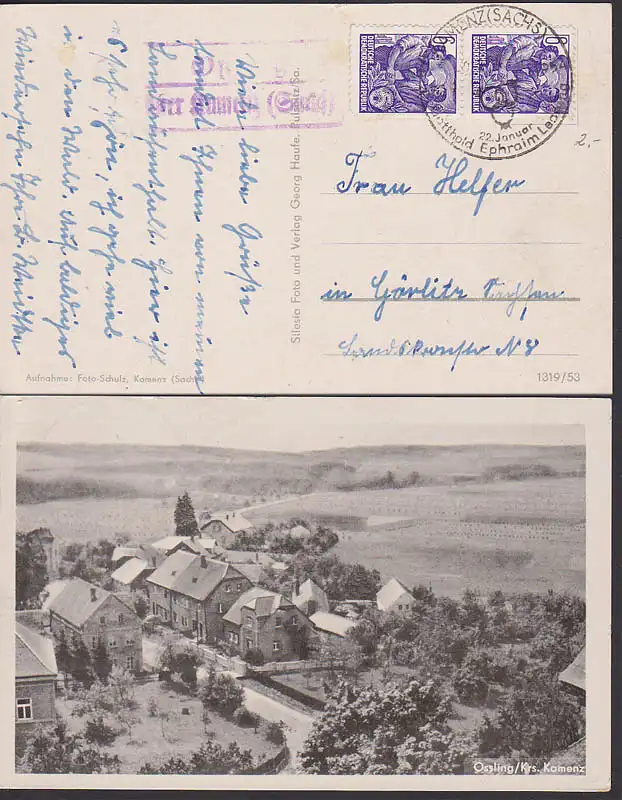 KAMENZ(SACHS)
22. Januar
Gotthold Ephraim Lessing
DEUTSCHE
DEMOKRATISCHE REPUBLIK
6
DEUTSCHE
DEMOKRATISCHE REPUBLIK
6
2.-
über Kamenz (Sachs)
Viele liebe Grüße
sendet Ihnen von meinem
Landaufenthalt. Hier ist
es sehr schön, ich gehe viel
in den Wald. Auf baldiges
Wiedersehn Ihre
Silesia Foto und Verlag Georg Haufe, Pulsnitz/Sa.
Frau Helfer
in Görlitz Sachsen
N 8
Aufnahme: Foto-Schulz, Kamenz (Sachs)
1319/53
Ossling/Krs. Kamenz